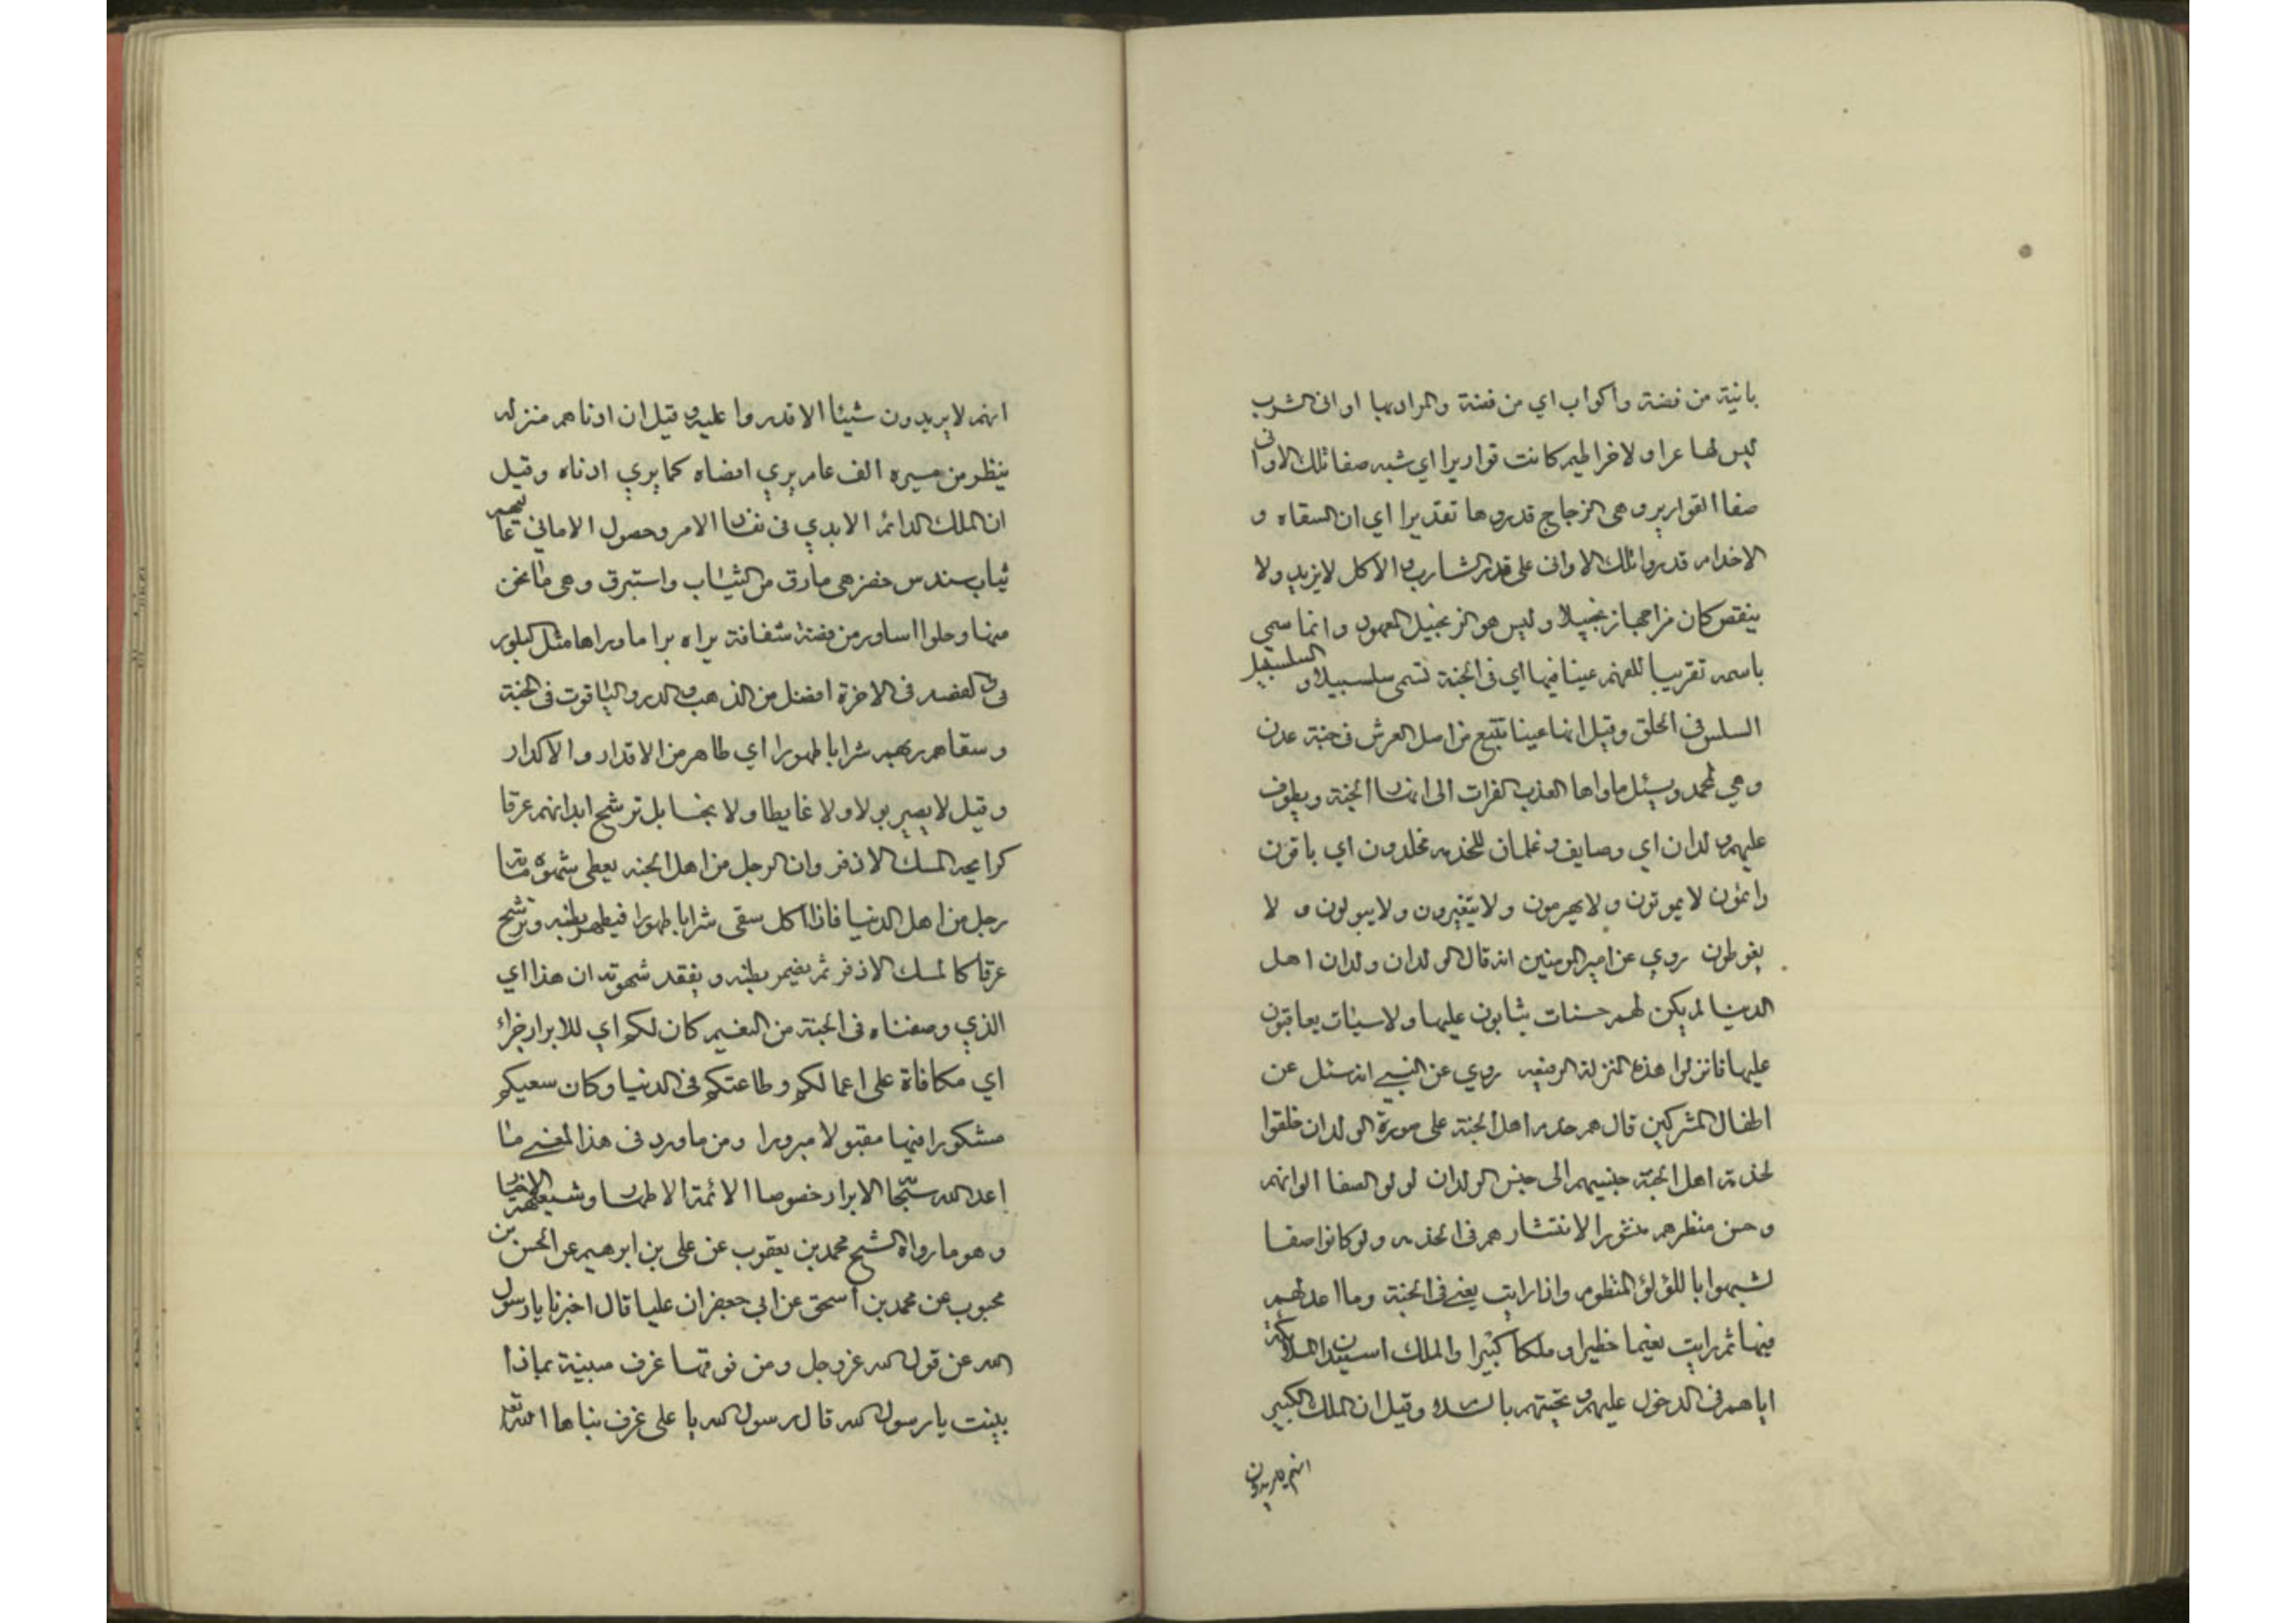 بانية من فضة واكواب اي من فضة والمراد بها اوانى الشرب
ليس لها عرا ولا خراطيم كانت قواريرا اي شبه صفا تلك الاوانى
صفا القوارير وهى الزجاج قدروها تقديرا اي ان السقاه و
الاخدام قدروا تلك الاوانى على قدر الشارب والاكل لا يزيد ولا
ينقص كان مزاجها زنجبيلا وليس هو الزنجبيل المعهود وانما سمي
باسمه تقريبا للفهم عينا فيها اي فى الجنة تسمى سلسبيلا والسلسبيل
السلس فى الحلق وقيل انها عينا تنبع من اصل العرش فى جنة عدن
وهي لمحمد ويسئل ماواها العذب الفرات الى انها الجنة ويطوف
عليهم ولدان اي وصايف وغلمان للخدمه مخلدون اي باقون
دائمون لا يموتون ولا يهرمون ولا يتغيرون ولا يبولون و لا
يغوطون روي عن امير المومنين انه قال الولدان ولدان اهل
الدنيا لم يكن لهم حسنات يثابون عليها ولا سيئات يعاقبون
عليها فانزلوا هذه المنزلة الرفيعه روي عن النبي انه سئل عن
اطفال المشركين قال هم خدم اهل الجنة على صورة الولدان خلقوا
لخدمة اهل الجنة حسبتهم الى حسن الولدان لولو الصفا الوانهم
وحسن منظرهم منثورا لانتشارهم فى الخدمه ولو كانوا صفا
لشبهوا با للؤلؤ المنظوم واذا رايت يعني فى الجنة وما اعد لهم
فيها ثم رايت نعيما خطيرا وملكا كبيرا والملك استيذان الملائكة
اياهم فى الدخول عليهم وتحيتهم بالسلام وقيل ان الملك الكبير
انهم لا يريدون
انهم لا يريدون شيئا الا قدروا عليه وقيل ان ادناهم منزله
ينظر من مسيره الف عام يري اقصاه كما يري ادناه وقيل
ان الملك الدائم الابدي فى نفا الامر وحصول الامانى عاليهم
ثياب سندس خضر هى مارق من الثياب واستبرق وهى ما ثخن
منها وحلوا اساور من فضة شفافة يراه برا ماوراها مثل البلور
فى الفضه فى الاخرة افضل من الذهب والدر والياقوت فى الجنة
وسقاهم ربهم شرابا طهورا اي طاهر من الاقدار والاكدار
وقيل لا يصير بولا ولا غايطا ولا نجسا بل ترشح ابدانهم عرقا
كرايحه المسك الاذفر وان الرجل من اهل الجنه يعطى شهوة مائة
رجل من اهل الدنيا فاذا اكل سقى شرابا طهورا فيطهر بطنه وترشح
عرقا كالمسك الاذفر ثم يضمر بطنه ويفقد شهوته ان هذا اي
الذي وصفناه فى الجنة من النعيم كان لكم اي للابرار جزاء
اي مكافاة على اعمالكم وطاعتكم فى الدنيا وكان سعيكم
مشكورا فيها مقبولا مبرورا ومن ماورد فى هذا المعنى ما
اعد الله سبحا الابرار خصوصا الائمة الاطهار وشيعتهم الاخيا
وهو ما رواه الشيخ محمد بن يعقوب عن على بن ابرهيم عن الحسن بن
محبوب عن محمد بن اسحق عن ابى جعفر ان عليا قال اخبرنا يا رسول
الله عن قول الله عز وجل ومن فوقها غرف مبنية بماذا
بنيت يا رسول الله قال رسول الله يا على غرف بناها الله تعا